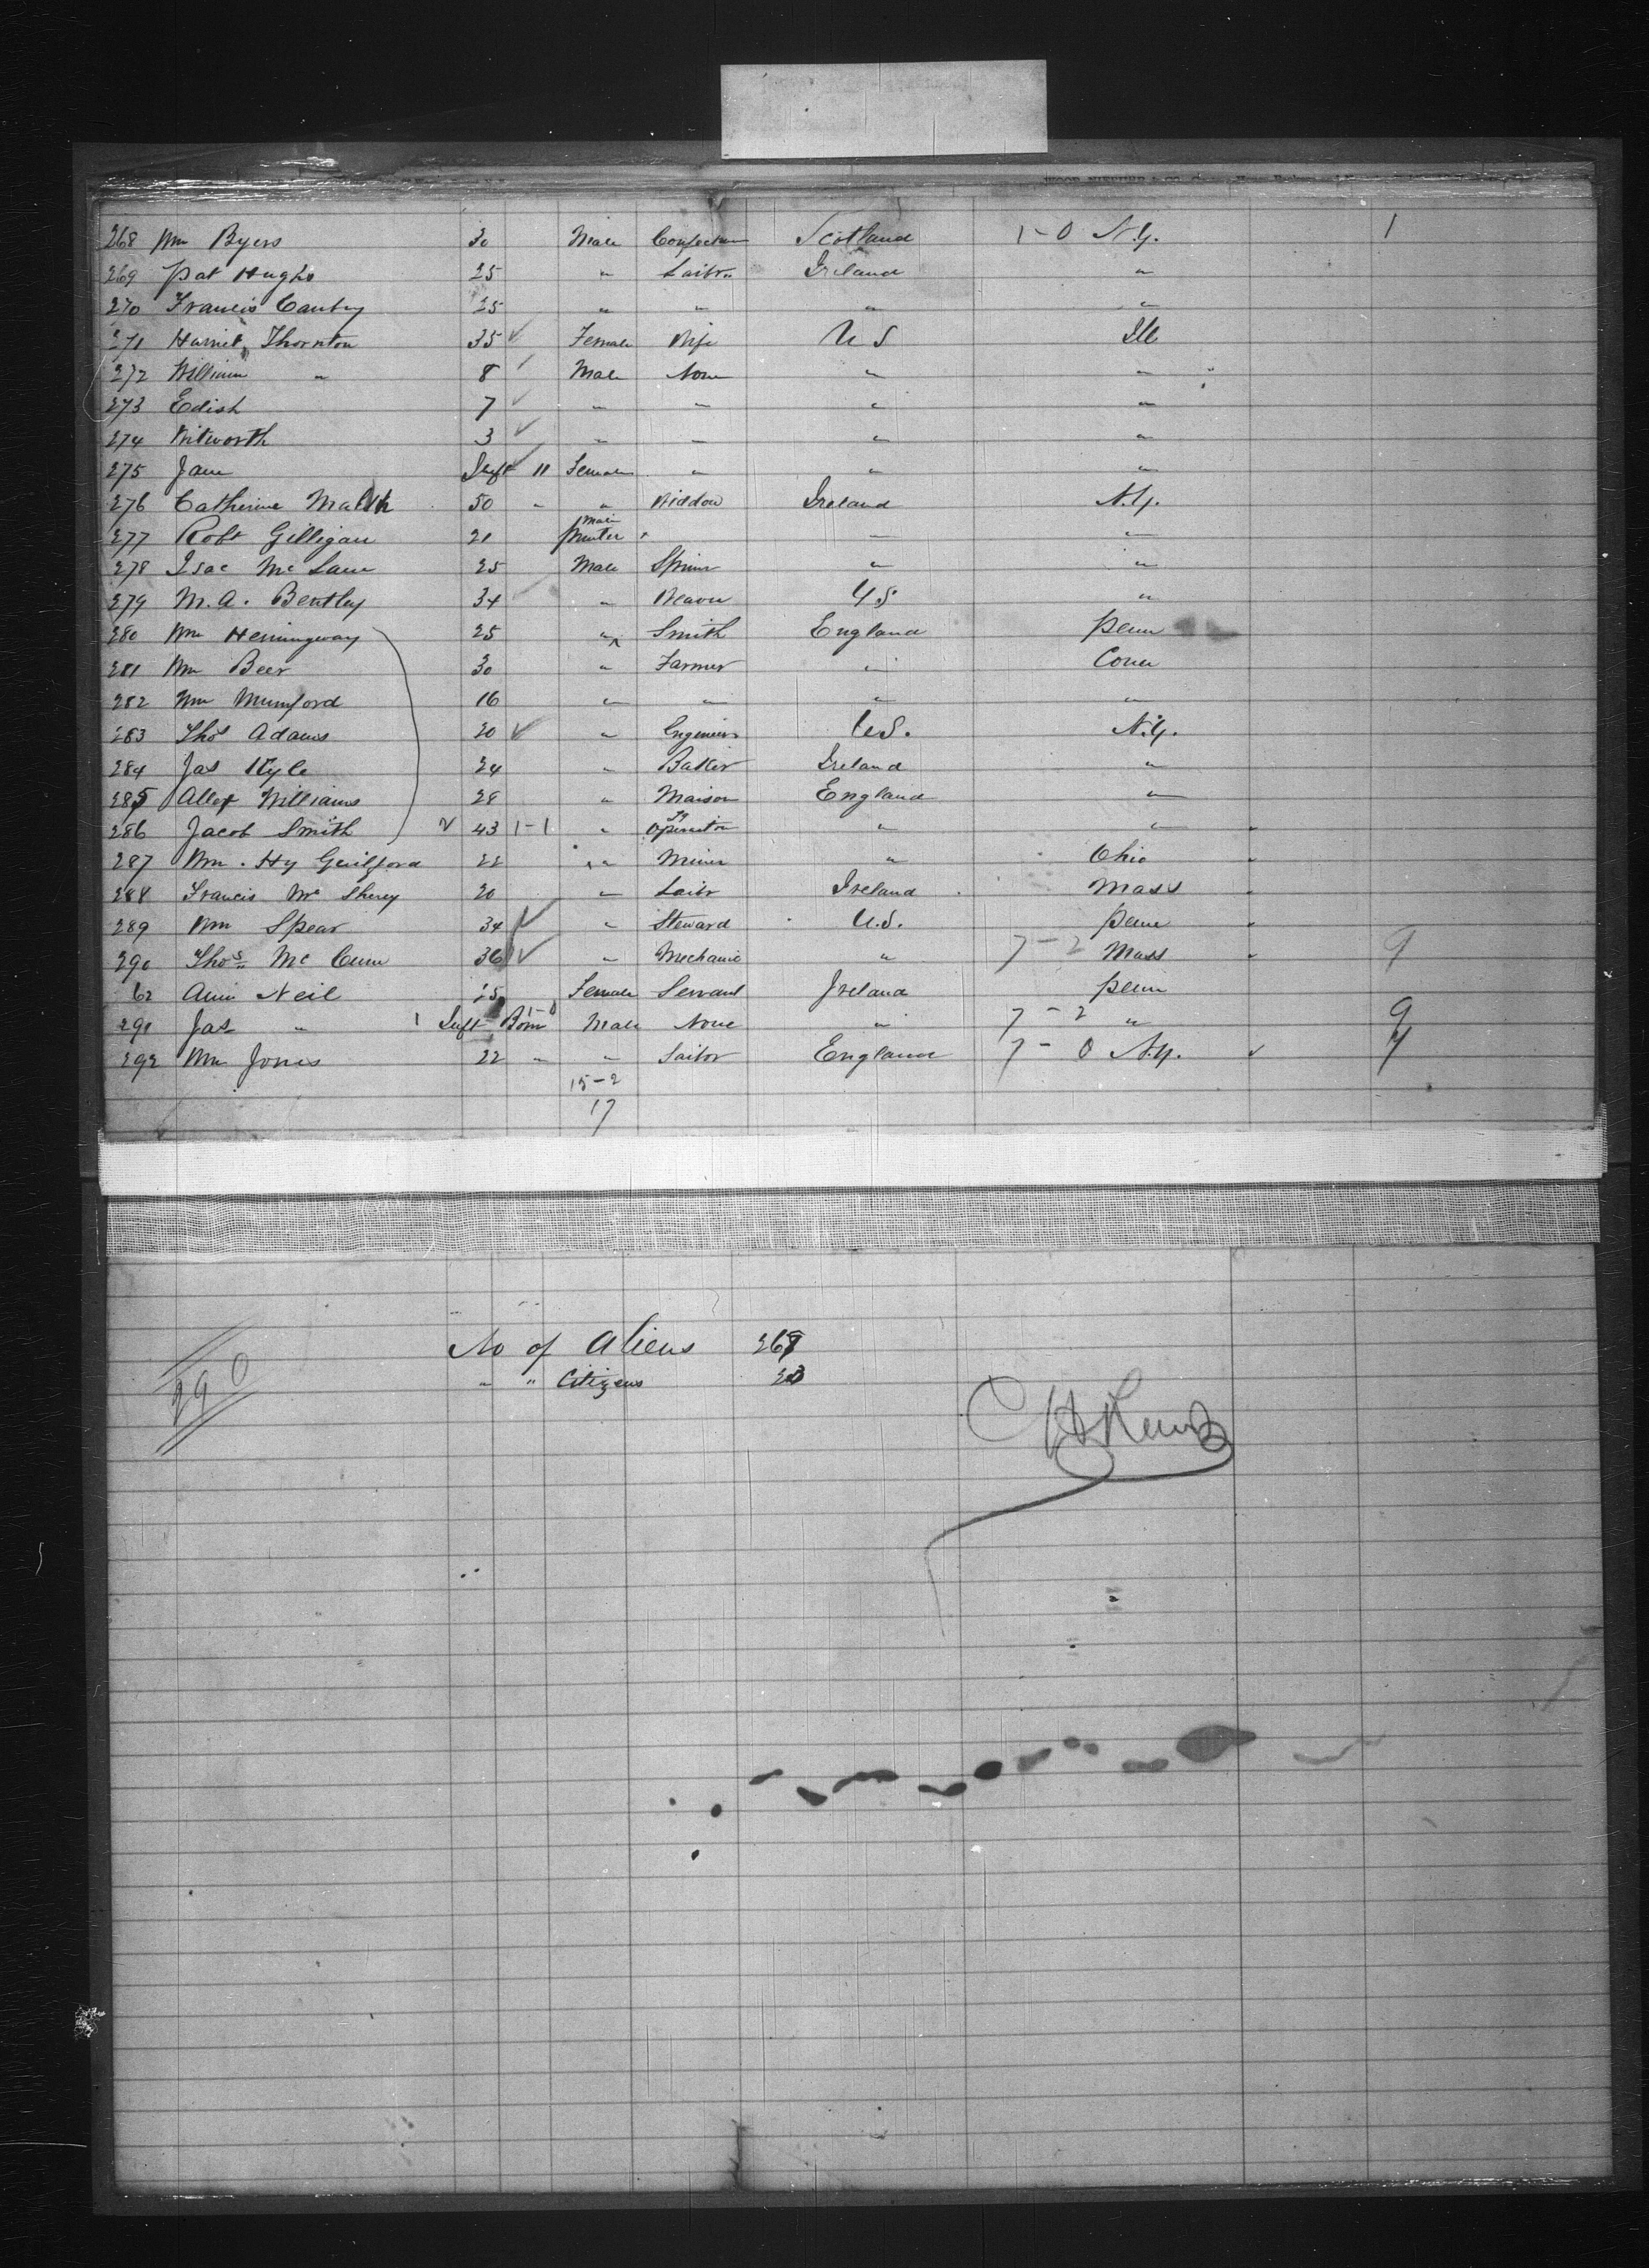 268 Wm Byers 30 Male Confection Scotland 1-0 N.Y. 1
269 Pat Hughs 25 " Laibr Ireland "
270 Francis 25 " " " "
271 Harriet Thornton 35 ✓ Female Wife U S Ill
272 William " 8 Male None " "
273 Edish 7 ✓ " " " "
274 Witworth 3 ✓ " " " "
275 Jane Inft ✓ 11 Female " " "
276 Catherine 50 " " Widdow Ireland N.Y.
277 Robt Gilligan 21 Male Printer " "
278 Isac Mc Lane 25 Male Spinner " "
279 M. A. Bentley 34 " Weaver U S "
280 Wm Hemingway 25 " Smith England Penn
281 Wm Beer 30 " Farmer " Conn
282 Wm Mumford 16 " " " "
283 Thos Adams 20 ✓ " Engineer U.S. N.Y.
284 Jas Kyle 24 " Baker Ireland "
285 Allex Williams 28 " Maison England "
286 Jacob Smith ✓ 43 1-1 " Tg Operator " "
287 Wm. Hy Guilford 22 " Miner " Ohio
288 Francis Mc Sherey 20 " Laibr Ireland Mass
289 Wm Spear 34 ✓ " Steward U.S. Penn
290 Thos Mc Cune 36 ✓ " Mechanic " 7-2 Mass 9
62 Ann Neil 25 Female Servant Ireland Penn
291 Jas " 1 Inft Born 1-0 Male None " 7-2 " 9
292 Wm Jones 22 " " Sailor England 7-0 N.Y. ✓ 7
15-2
17
No of Aliens 267
" " Citizens 23
290